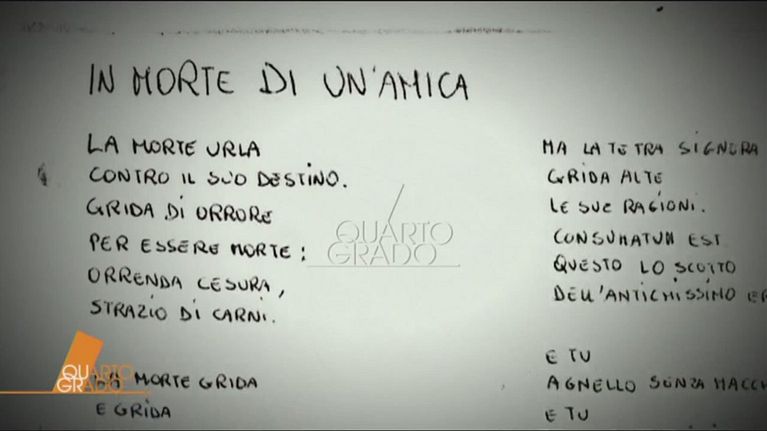 IN MORTE DI UN'AMICA
LA MORTE URLA
CONTRO IL SUO DESTINO.
GRIDA DI ORRORE
PER ESSERE MORTE:
ORRENDA CESURA,
STRAZIO DI CARNI.
MORTE GRIDA
E GRIDA
MA LA TETRA SIGNORA
GRIDA ALTE
LE SUE RAGIONI.
CONSUMATUM EST
QUESTO LO SCOTTO
DELL'ANTICHISSIMO
E TU
AGNELLO SENZA
E TU
QUARTO
GRADO
QUARTO
GRADO